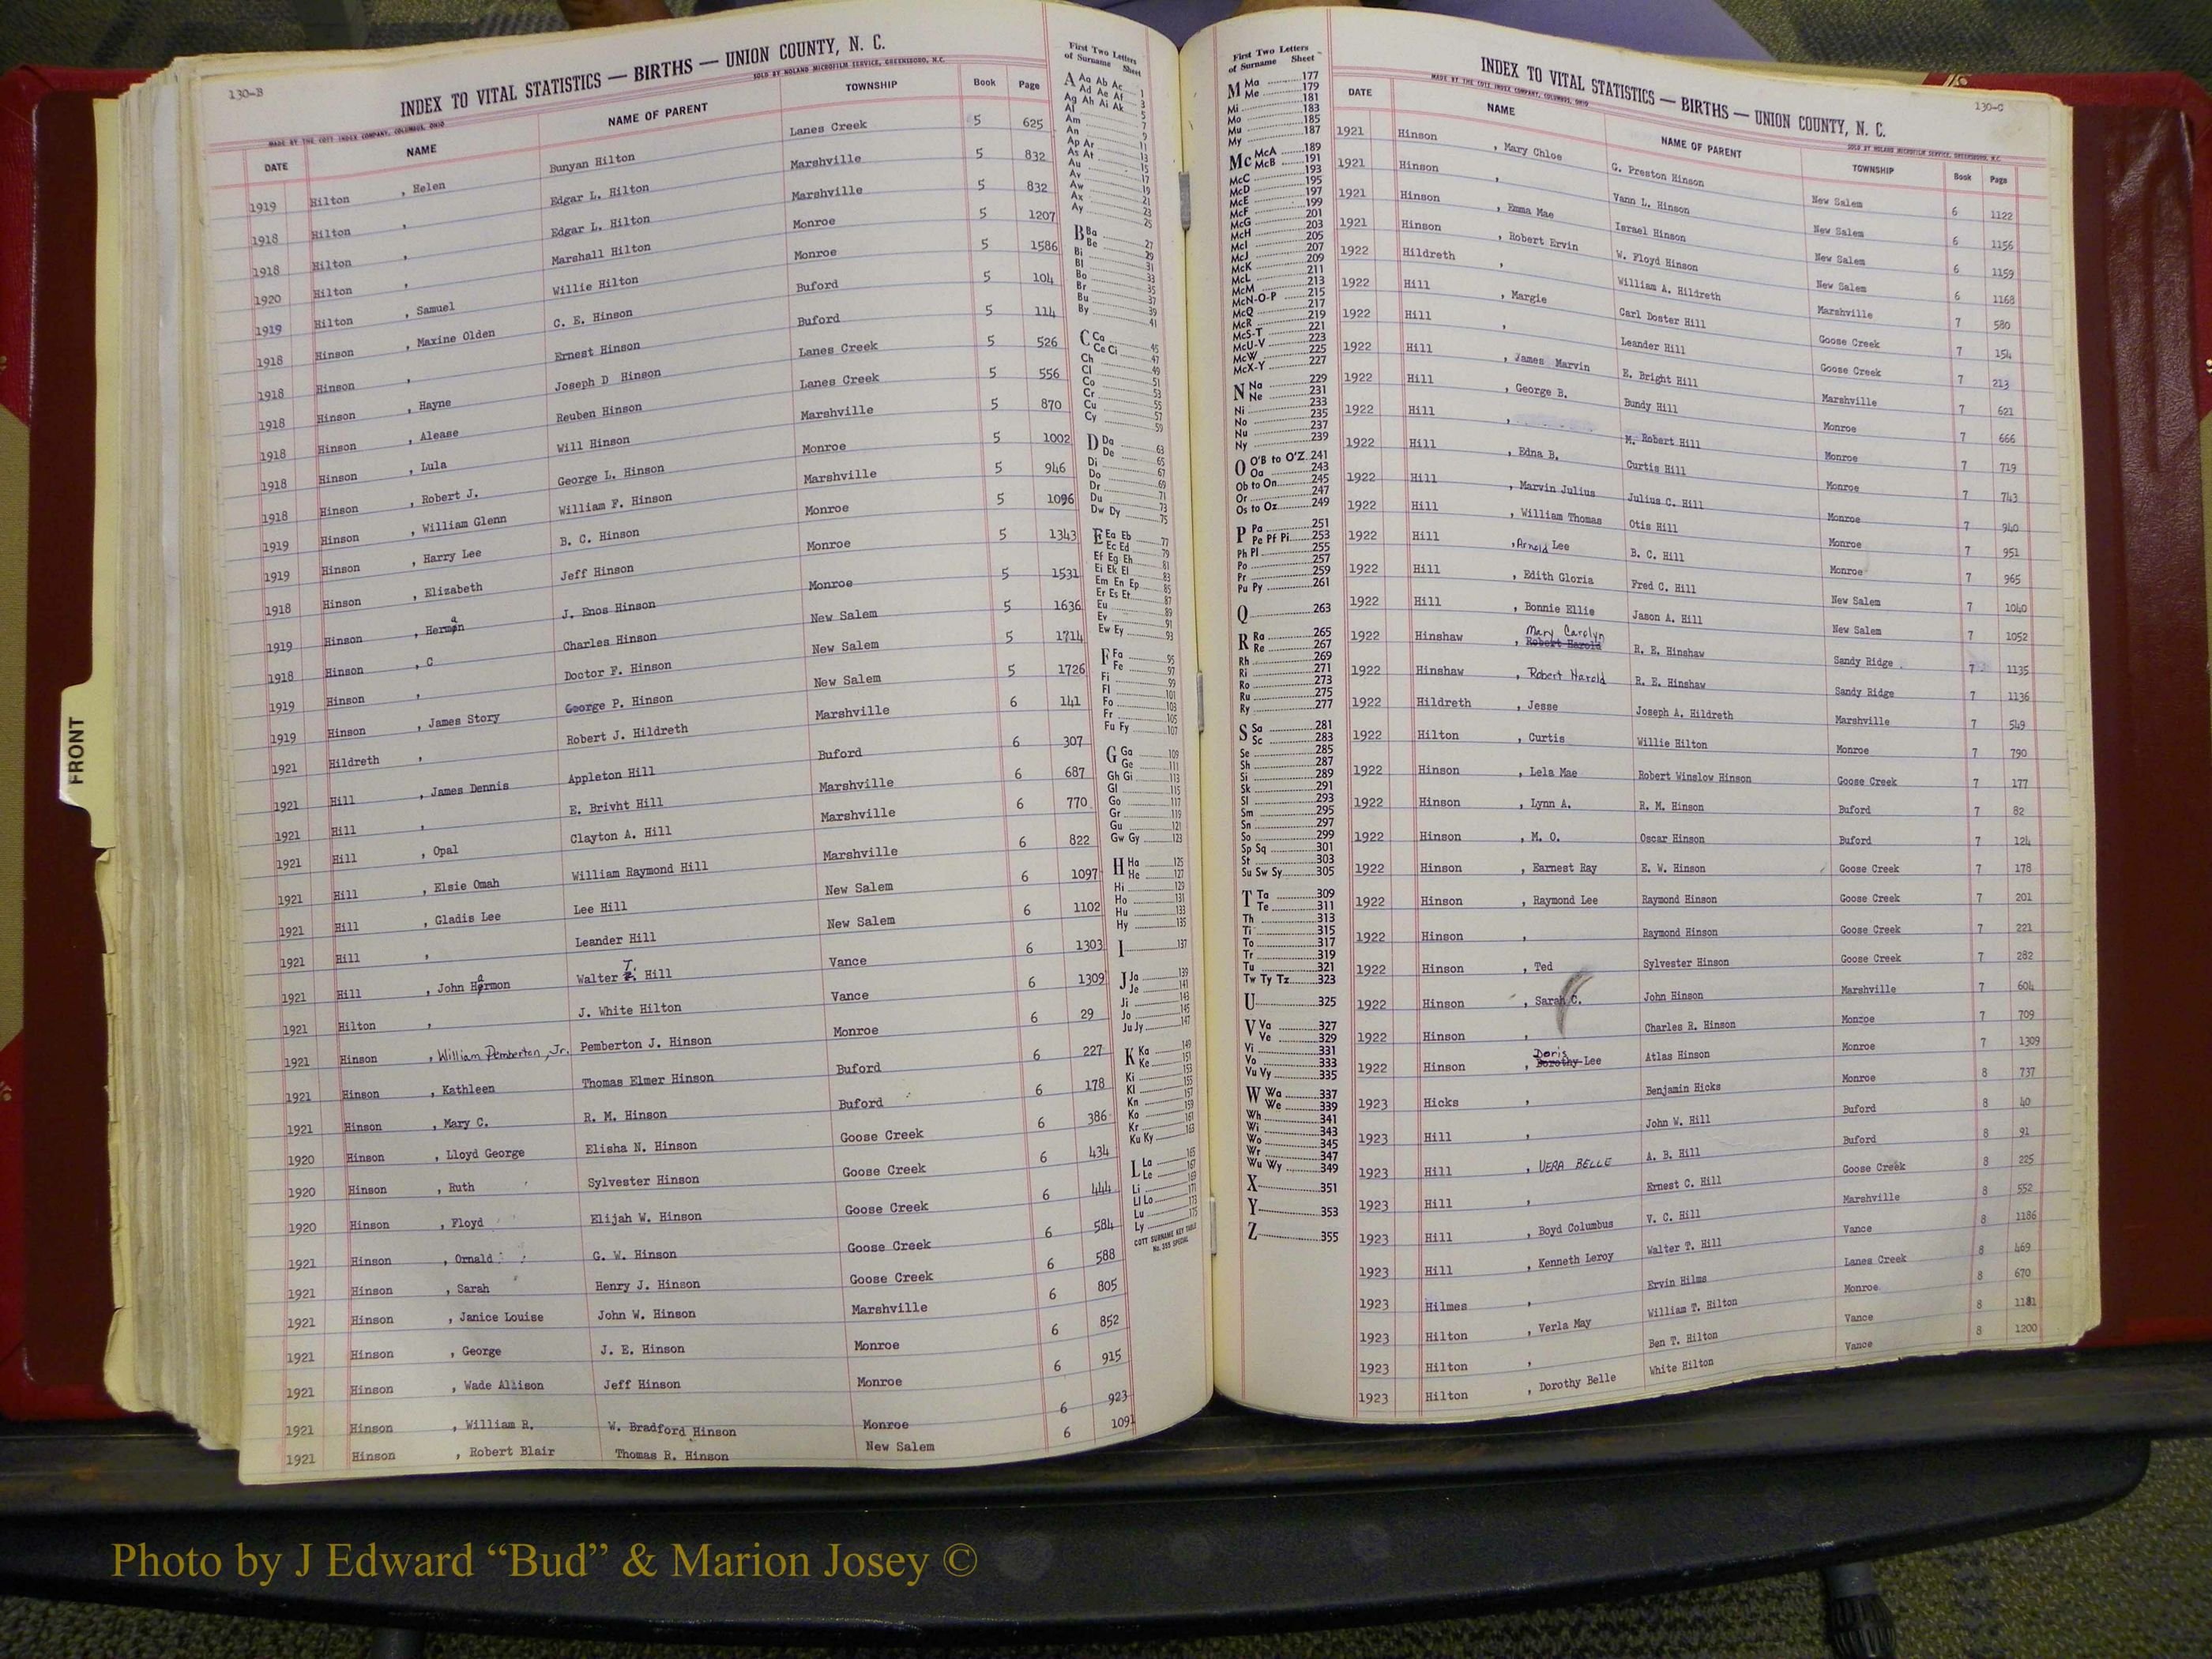 130-B
INDEX TO VITAL STATISTICS — BIRTHS — UNION COUNTY, N. C.
MADE BY THE COTT INDEX COMPANY, COLUMBUS, OHIO SOLD BY NOLAND MICROFILM SERVICE, GREENSBORO, N.C.
DATE NAME NAME OF PARENT TOWNSHIP Book Page
1919 Hilton , Helen Bunyan Hilton Lanes Creek 5 625
1918 Hilton , Edgar L. Hilton Marshville 5 832
1918 Hilton , Edgar L. Hilton Marshville 5 832
1920 Hilton , Marshall Hilton Monroe 5 1207
1919 Hilton , Samuel Willie Hilton Monroe 5 1586
1918 Hinson , Maxine Olden C. E. Hinson Buford 5 104
1918 Hinson , Ernest Hinson Buford 5 114
1918 Hinson , Hayne Joseph D Hinson Lanes Creek 5 526
1918 Hinson , Alease Reuben Hinson Lanes Creek 5 556
1918 Hinson , Lula Will Hinson Marshville 5 870
1918 Hinson , Robert J. George L. Hinson Monroe 5 1002
1919 Hinson , William Glenn William F. Hinson Marshville 5 946
1919 Hinson , Harry Lee B. C. Hinson Monroe 5 1096
1918 Hinson , Elizabeth Jeff Hinson Monroe 5 1343
1919 Hinson , Herman J. Enos Hinson Monroe 5 1531
1918 Hinson , C Charles Hinson New Salem 5 1636
1919 Hinson , Doctor F. Hinson New Salem 5 1714
1919 Hinson , James Story George P. Hinson New Salem 5 1726
1921 Hildreth , Robert J. Hildreth Marshville 6 141
1921 Hill , James Dennis Appleton Hill Buford 6 307
1921 Hill , E. Brivht Hill Marshville 6 687
1921 Hill , Opal Clayton A. Hill Marshville 6 770
1921 Hill , Elsie Omah William Raymond Hill Marshville 6 822
1921 Hill , Gladis Lee Lee Hill New Salem 6 1097
1921 Hill , Leander Hill New Salem 6 1102
1921 Hill , John Harmon Walter T. Hill Vance 6 1303
1921 Hilton , J. White Hilton Vance 6 1309
1921 Hinson , William Pemberton, Jr. Pemberton J. Hinson Monroe 6 29
1921 Hinson , Kathleen Thomas Elmer Hinson Buford 6 227
1921 Hinson , Mary C. R. M. Hinson Buford 6 178
1920 Hinson , Lloyd George Elisha N. Hinson Goose Creek 6 386
1920 Hinson , Ruth Sylvester Hinson Goose Creek 6 434
1920 Hinson , Floyd Elijah W. Hinson Goose Creek 6 444
1921 Hinson , Ornald G. W. Hinson Goose Creek 6 584
1921 Hinson , Sarah Henry J. Hinson Goose Creek 6 588
1921 Hinson , Janice Louise John W. Hinson Marshville 6 805
1921 Hinson , George J. E. Hinson Monroe 6 852
1921 Hinson , Wade Allison Jeff Hinson Monroe 6 915
1921 Hinson , William R. W. Bradford Hinson Monroe 6 923
1921 Hinson , Robert Blair Thomas R. Hinson New Salem 6 1091
FRONT
First Two Letters
of Surname Sheet
A Aa Ab Ac 1
Ad Ae Af 3
Ag Ah Ai Ak 5
Al 7
Am 9
An 11
Ap Ar 13
As At 15
Au 17
Av 19
Aw 21
Ax 23
Ay 25
B Ba 27
Be 29
Bi 31
Bl 33
Bo 35
Br 37
Bu 39
By 41
C Ca 45
Ce Ci 47
Ch 49
Cl 51
Co 53
Cr 55
Cu 57
Cy 59
D Da 63
De 65
Di 67
Do 69
Dr 71
Du 73
Dw Dy 75
E Ea Eb 77
Ec Ed 79
Ef Eg Eh 81
Ei Ek El 83
Em En Ep 85
Er Es Et 87
Eu 89
Ev 91
Ew Ey 93
F Fa 95
Fe 97
Fi 99
Fl 101
Fo 103
Fr 105
Fu Fy 107
G Ga 109
Ge 111
Gh Gi 113
Gl 115
Go 117
Gr 119
Gu 121
Gw Gy 123
H Ha 125
He 127
Hi 129
Ho 131
Hu 133
Hy 135
I 137
J Ja 139
Je 141
Ji 143
Jo 145
Ju Jy 147
K Ka 149
Ke 151
Ki 153
Kl 155
Kn 157
Ko 159
Kr 161
Ku Ky 163
L La 165
Le 167
Li 169
Ll Lo 171
Lu 173
Ly 175
COTT SURNAME KEY TABLE
No. 355 SPECIAL
First Two Letters
of Surname Sheet
M Ma 177
Me 179
Mi 181
Mo 183
Mu 185
My 187
Mc McA 189
McB 191
McC 193
McD 195
McE 197
McF 199
McG 201
McH 203
McI 205
McJ 207
McK 209
McL 211
McM 213
McN-O-P 215
McQ 217
McR 219
McS-T 221
McU-V 223
McW 225
McX-Y 227
N Na 229
Ne 231
Ni 233
No 235
Nu 237
Ny 239
O O'B to O'Z 241
Oa 243
Ob to On 245
Or 247
Os to Oz 249
P Pa 251
Pe Pf Pi 253
Ph Pl 255
Po 257
Pr 259
Pu Py 261
Q 263
R Ra 265
Re 267
Rh 269
Ri 271
Ro 273
Ru 275
Ry 277
S Sa 281
Sc 283
Se 285
Sh 287
Si 289
Sk 291
Sl 293
Sm 295
Sn 297
So 299
Sp Sq 301
St 303
Su Sw Sy 305
T Ta 309
Te 311
Th 313
Ti 315
To 317
Tr 319
Tu 321
Tw Ty Tz 323
U 325
V Va 327
Ve 329
Vi 331
Vo 333
Vu Vy 335
W Wa 337
We 339
Wh 341
Wi 343
Wo 345
Wr 347
Wu Wy 349
X 351
Y 353
Z 355
130-C
INDEX TO VITAL STATISTICS — BIRTHS — UNION COUNTY, N. C.
MADE BY THE COTT INDEX COMPANY, COLUMBUS, OHIO SOLD BY NOLAND MICROFILM SERVICE, GREENSBORO, N.C.
DATE NAME NAME OF PARENT TOWNSHIP Book Page
1921 Hinson , Mary Chloe G. Preston Hinson New Salem 6 1122
1921 Hinson , Vann L. Hinson New Salem 6 1156
1921 Hinson , Emma Mae Israel Hinson New Salem 6 1159
1921 Hinson , Robert Ervin W. Floyd Hinson New Salem 6 1168
1922 Hildreth , William A. Hildreth Marshville 7 580
1922 Hill , Margie Carl Doster Hill Goose Creek 7 154
1922 Hill , Leander Hill Goose Creek 7 213
1922 Hill , James Marvin E. Bright Hill Marshville 7 621
1922 Hill , George B. Bundy Hill Monroe 7 666
1922 Hill , M. Robert Hill Monroe 7 719
1922 Hill , Edna B. Curtis Hill Monroe 7 743
1922 Hill , Marvin Julius Julius C. Hill Monroe 7 940
1922 Hill , William Thomas Otis Hill Monroe 7 951
1922 Hill , Arnold Lee B. C. Hill Monroe 7 965
1922 Hill , Edith Gloria Fred C. Hill New Salem 7 1040
1922 Hill , Bonnie Ellie Jason A. Hill New Salem 7 1052
1922 Hinshaw , Mary Carolyn Robert Harold R. E. Hinshaw Sandy Ridge 7 1135
1922 Hinshaw , Robert Harold R. E. Hinshaw Sandy Ridge 7 1136
1922 Hildreth , Jesse Joseph A. Hildreth Marshville 7 549
1922 Hilton , Curtis Willie Hilton Monroe 7 790
1922 Hinson , Lela Mae Robert Winslow Hinson Goose Creek 7 177
1922 Hinson , Lynn A. R. M. Hinson Buford 7 82
1922 Hinson , M. O. Oscar Hinson Buford 7 124
1922 Hinson , Earnest Ray E. W. Hinson Goose Creek 7 178
1922 Hinson , Raymond Lee Raymond Hinson Goose Creek 7 201
1922 Hinson , Raymond Hinson Goose Creek 7 221
1922 Hinson , Ted Sylvester Hinson Goose Creek 7 282
1922 Hinson , Sarah C. John Hinson Marshville 7 604
1922 Hinson , Charles R. Hinson Monroe 7 709
1922 Hinson , Doris Dorothy Lee Atlas Hinson Monroe 7 1309
1923 Hicks , Benjamin Hicks Monroe 8 737
1923 Hill , John W. Hill Buford 8 40
1923 Hill , VERA BELLE A. B. Hill Buford 8 91
1923 Hill , Ernest C. Hill Goose Creek 8 225
1923 Hill , Boyd Columbus V. C. Hill Marshville 8 552
1923 Hill , Kenneth Leroy Walter T. Hill Vance 8 1186
1923 Hilmes , Ervin Hilms Lanes Creek 8 469
1923 Hilton , Verla May William T. Hilton Monroe 8 670
1923 Hilton , Ben T. Hilton Vance 8 1181
1923 Hilton , Dorothy Belle White Hilton Vance 8 1200
Photo by J Edward “Bud” & Marion Josey ©